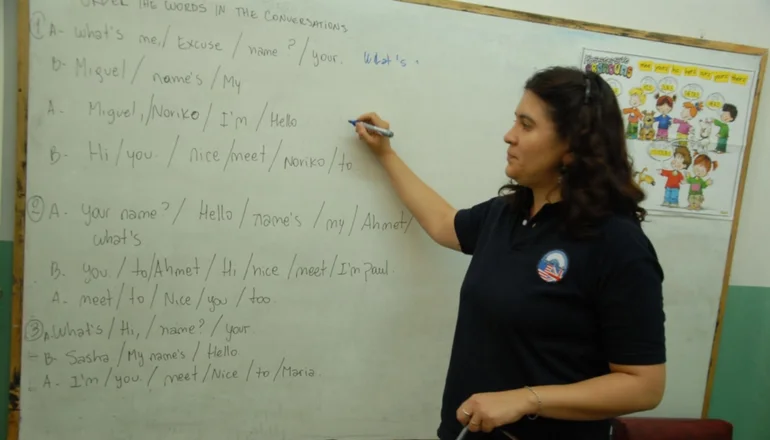 ORDER THE WORDS IN THE CONVERSATIONS
① A- What's me,/ Excuse / name? / your. What's
B- Miguel / name's / My
A. Miguel, / Noriko / I'm / Hello
B- Hi / you / nice / meet / Noriko / to
② A. your name? / Hello / name's / my / Ahmet /
what's
B. you / to / Ahmet / Hi / nice / meet / I'm Paul.
A- meet / to / Nice / you / too.
③ A. What's / Hi, / name? / your.
B- Sasha / My name's / Hello
A- I'm / you / meet / Nice / to / Maria